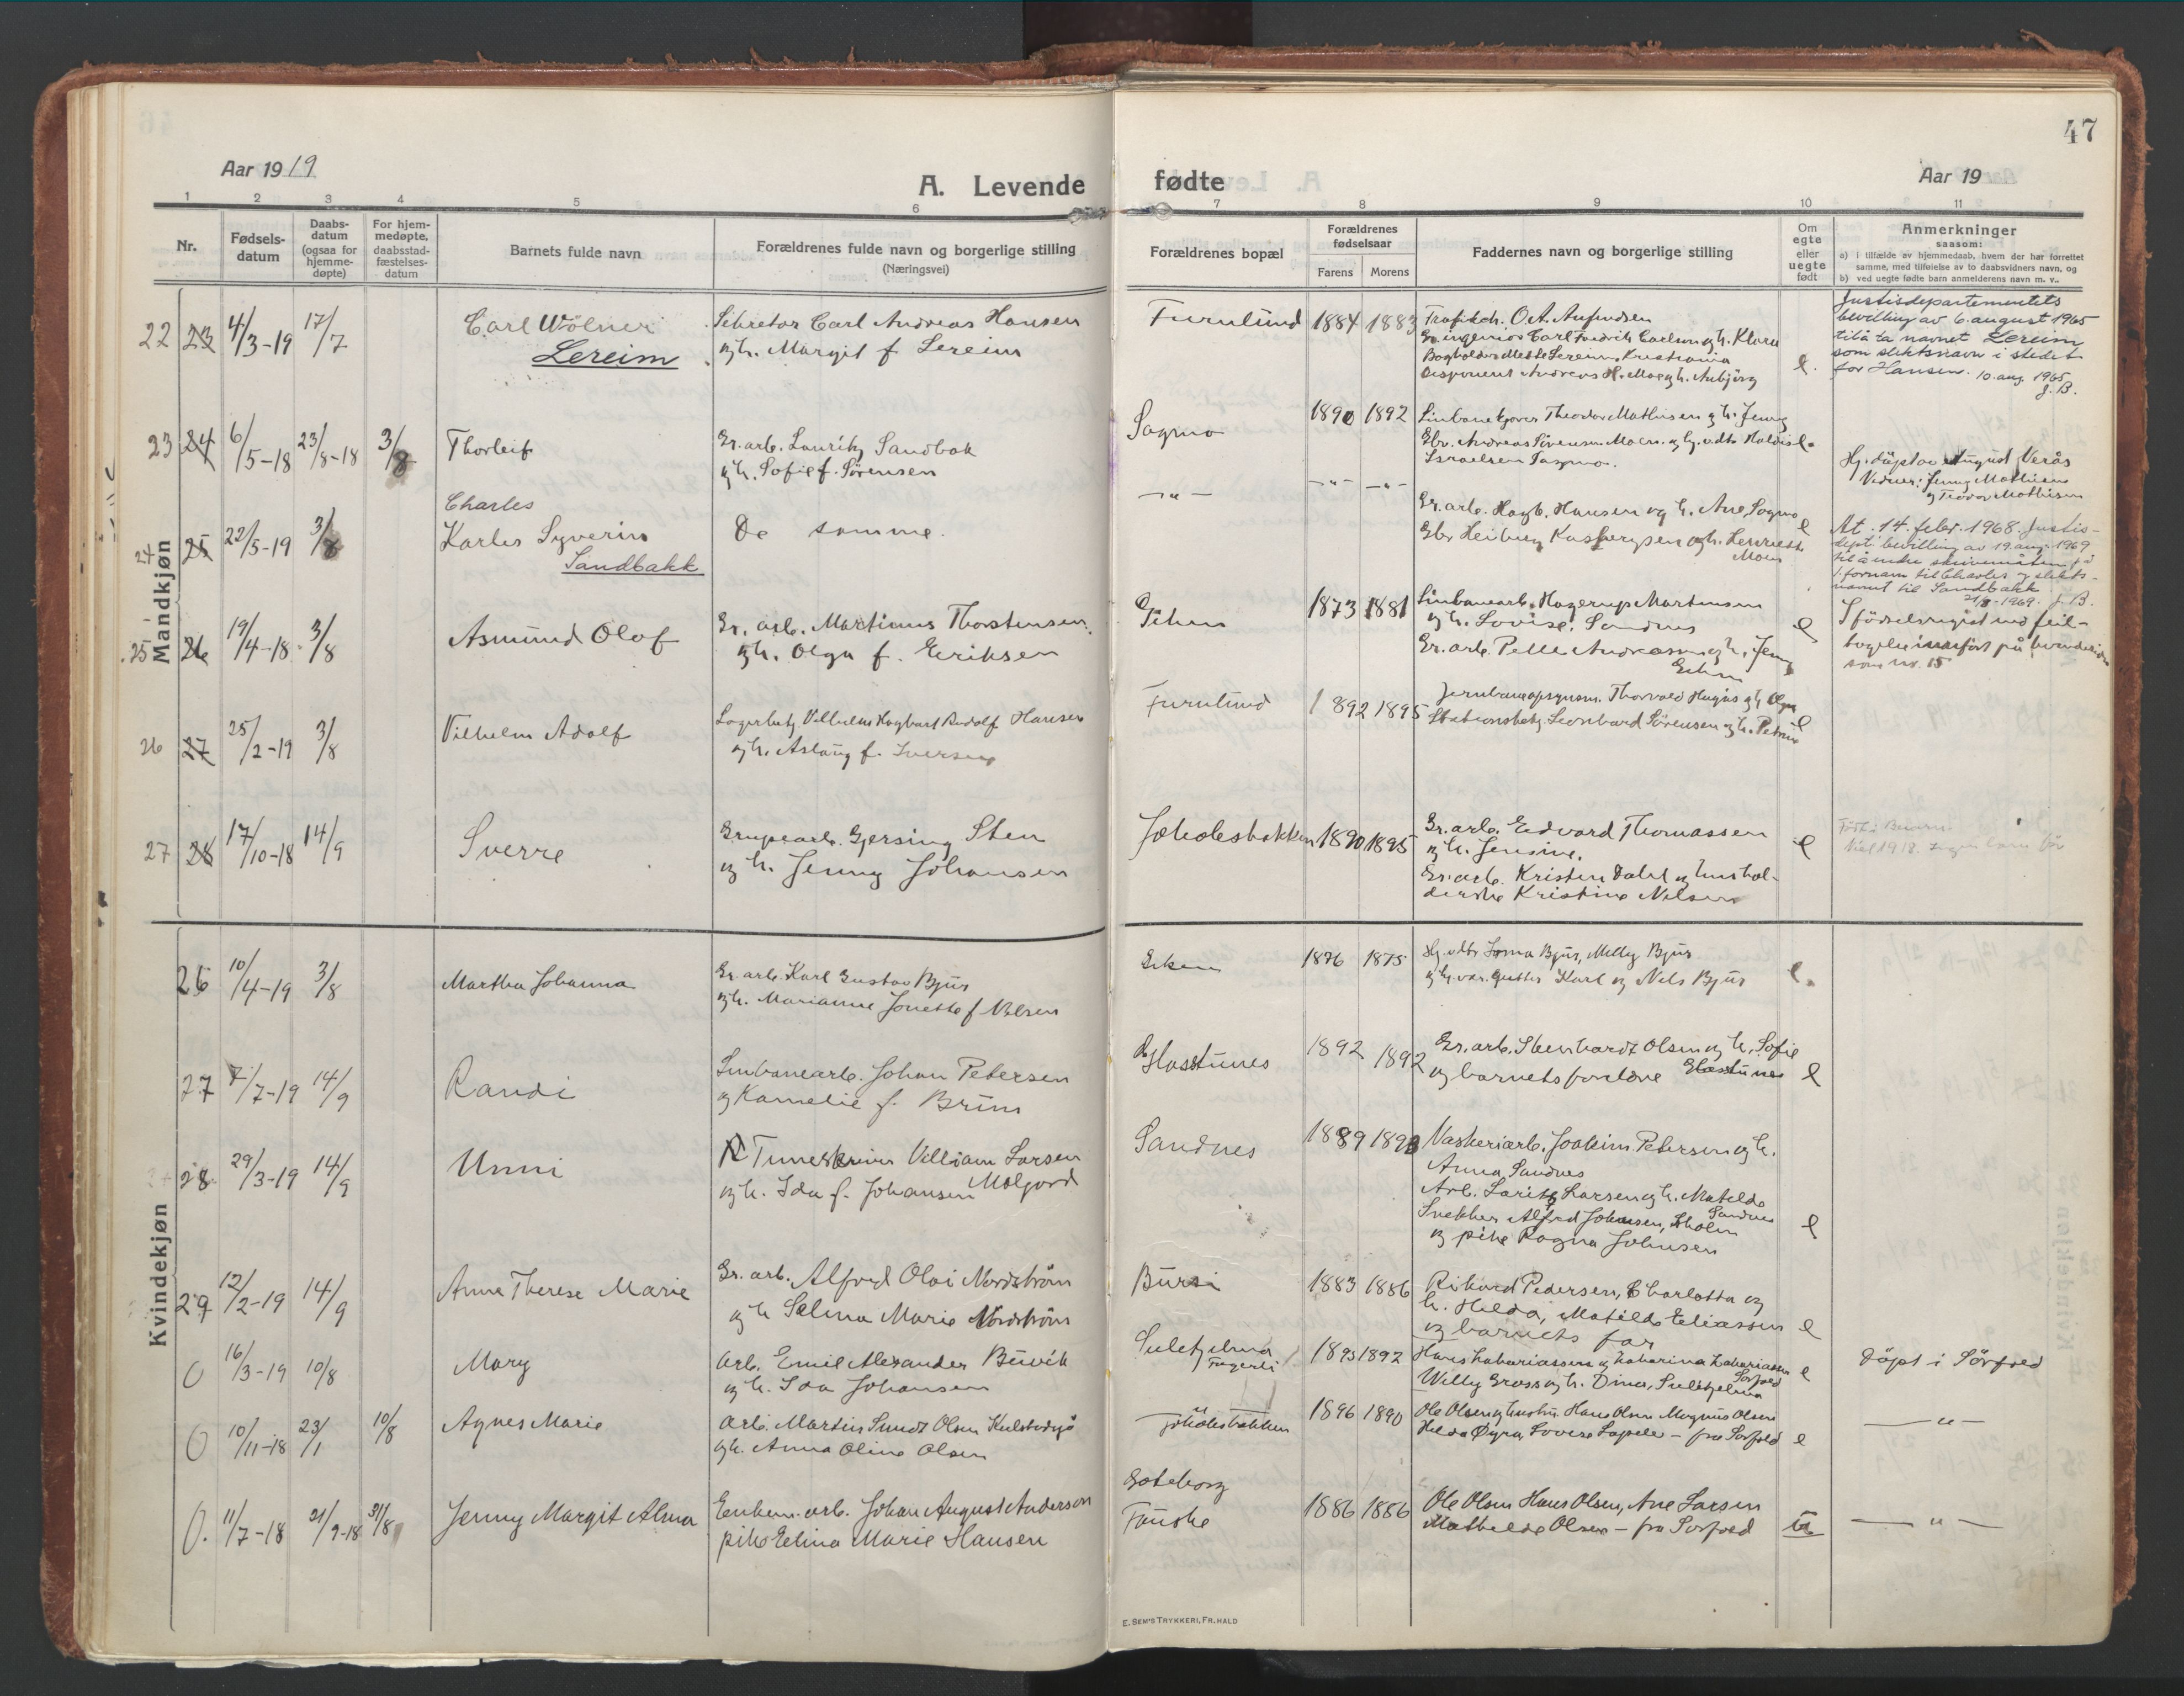 47
Aar 1919
A. Levende fødte
Aar 19
1 2 3 4 5 6 7 8 9 10 11
Nr.
Fødsels-
datum
Daabs-
datum
(ogsaa for
hjemme-
døpte)
For hjem-
medøpte,
daabsstad-
fæstelses-
datum
Barnets fulde navn
Forældrenes fulde navn og borgerlige stilling
(Næringsvei)
Forældrenes bopæl
Forældrenes
fødselsaar
Farens Morens
Faddernes navn og borgerlige stilling
Om
egte
eller
uegte
født
Anmerkninger
saasom:
a) i tilfælde av hjemmedaab, hvem der har forrettet
samme, med tilføielse av to daabsvidners navn, og
b) ved uegte fødte barn anmelderens navn m. v..
Mandkjøn
22 23 4/3-19 17/7
Carl Wölner
Lereim
Sekretær Carl Andreas Hansen
og h. Margit f Lereim
Furulund 1884 1883
Trafikch. O.A. Aufindsen
Gr. ingeniør Carl Fredrik Carlsen og h. Klara
Bogholder Lereim, Kristiania
Disponent Andreas H. Moe og h. Anbjörg
e.
Justisdepartementets
bevilling av 6. august 1965
til å ta navnet Lereim
som slektsnavn i stedet
for Hansen. 10. aug. 1965
J.B.
23 24 6/5-18 23/8-18 3/8
Thorleif
Gr. arb. Lauritz Sandbak
og h. Sofie f. Sørensen
Sagmo 1890 1892
Theodor Mathisen og h. Jenny
Gbr. Andreas Sörensen Moen og
Israelsen Sagmo.
e
Hj. döpt av August Verås
Vidner: Jenny Mathisen
og Teodor Mathisen
24 25 22/5-19 3/8
Charles
Karles Syverin
Sandbakk
De samme.
— " — — " — — " —
Gr. arb. Hagb. Hansen og h. Ane, Sagmo
Gbr Heiberg Kaspersen og h. Henriette
Moen
e
At. 14. febr. 1968. Justis-
dept. bevilling av 19. aug. 1969
til å endre skrivemåten på
1. fornavn til Charles og slekts-
navnet til Sandbakk
21/8-1969. J.B.
25 26 19/4-18 3/8
Asmund Olaf
Gr. arb. Martinus Thorstensen
og h. Olga f. Eriksen
1873 1881
Linbanearb. Hagerup Martinsen
og h. Lovise, Sandnes
Gr. arb. Pelle Andreasen og h. Jenny
e
I fødselsregistret ved feil-
som nr. 15
26 27 25/2-19 3/8
Vilhelm Adolf
Lagerbetj. Vilhelm Hagbart Rudolf Hansen
og h. Aslaug f. Iversen
Furulund 1892 1895
Jernbaneopsynsm. Thorvald og h. Olga
Stationsbetj. Leonhard Sörensen og h. Petrine
e
27 28 17/10-18 14/9
Sverre
Grupearb. Gjersing Sten
og h. Jenny Johansen
Jakobsbakken 1890 1895
Gr. arb. Edvard Thomassen
og h. Jensine.
Gr. arb. Kristen Dahl og hushol-
derske Kristine Nilsen
e
Kvindekjøn
26 10/4-19 3/8
Martha Johanna
Gr. arb. Karl Gustav Bjur
og h. Marianne Jonette f Nilsen
1876 1875
Bjur, Milly Bjur
og Karl og Nils Bjur
e.
27 7/7-19 14/9
Randi
Linbanearb. Johan Petersen
og Kamelie f. Brun
Glasstunes 1892 1892
Gr. arb. Stenhardt Olsen og h. Sofie
og barnets foreldre Glasstunes
e
28 29/3-19 14/9
Unni
Timeskriver Villiam Larsen
og h. Ida f. Johansen Molgord
Sandnes 1889 1893
Vaskeriarb. Joakim Petersen og h.
Anna, Sandnes
Arb. Laritz Larsen og h. Matilde
Sandnes
Snekker Alfred Johansen,
og pike Ragna Johnsen
e
29 12/2-19 14/9
Anna Therese Marie
Gr. arb. Alfred Olai Nordström
og h Selma Marie Nordström
Bursi 1883 1886
Rikard Pedersen, Charlotta og
h. Hilda, Matilde Eliassen
og barnets far
e
0 16/3-19 10/8
Mary
Arb. Emil Alexander Buvik
og h. Ida Johansen
Sulitjelma
Fagerli 1893 1892
Hans Zakariassen og Katarina Zakariassen
Sørfold
Willy Gross og h. Dina, Sulitjelma
e
döpt i Sörfold
0 10/11-18 23/1 10/8
Agnes Marie
Arb. Martin Sundt Olsen
og h. Anna Oline Olsen
— " —
Jakobsbakken 1896 1890
Ole Olsen og hustru, Hans Olsen Magnus Olsen
Hilda Öyra, Lovise — fra Sørfold
e
— " —
0. 11/7-18 21/9-18 31/8
Jenny Margit Alma
arb. Johan August Anderson
pike Elina Marie Hansen
Gøteborg
Fauske 1886 1886
Ole Olsen Hans Olsen, Ane Larsen
Mathilde Olsen — fra Sørfold
u
— " —
E. SEM'S TRYKKERI, FR.HALD